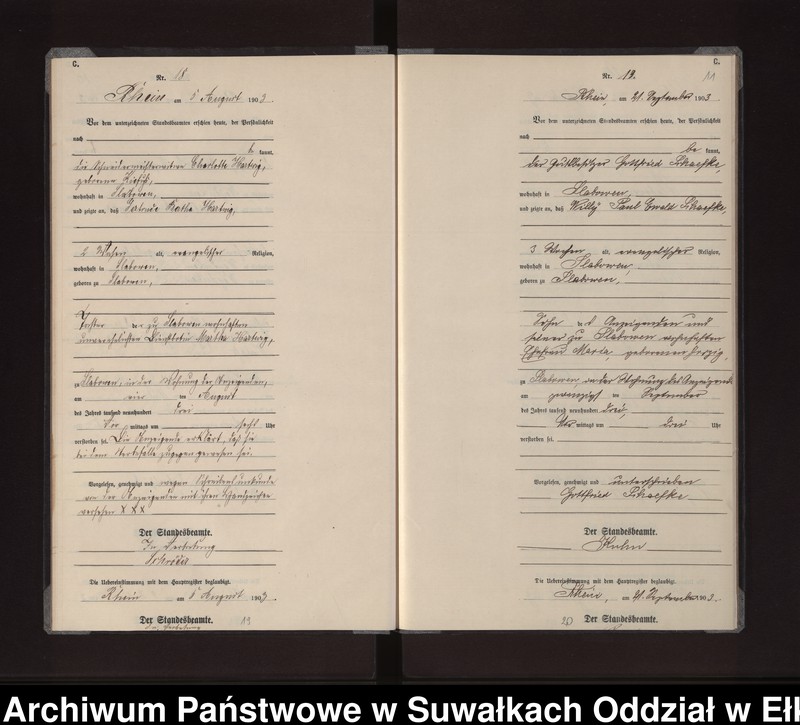 C.
Nr. 18
Rhein am 5 August 1903.
Vor dem unterzeichneten Standesbeamten erschien heute, der Persönlichkeit
nach
be kannt,
die Charlotte Hartwig,
geborene
wohnhaft in Slabowen,
und zeigte an, daß Gertrude Martha Hartwig,
2 Wochen alt, evangelischer Religion,
wohnhaft in Slabowen,
geboren zu Slabowen,
Tochter der zu Slabowen wohnhaften
unverehelichten Martha Hartwig,
zu Slabowen, in der Wohnung der Anzeigenden,
am vier ten August
des Jahres tausend neunhundert drei
Vor mittags um sechs Uhr
verstorben sei. Die Anzeigende erklärt, daß sie
bei dem Sterbefalle zugegen gewesen sei.
Vorgelesen, genehmigt und wegen Schreibensunkunde
von der Anzeigenden mit ihren Handzeichen
versehen X X X
Der Standesbeamte.
In Vertretung
Die Uebereinstimmung mit dem Hauptregister beglaubigt.
Rhein am 5 August 1903.
Der Standesbeamte.
In Vertretung
C.
Nr. 19. 11
Rhein, am 21. September 1903
Vor dem unterzeichneten Standesbeamten erschien heute, der Persönlichkeit
nach
be kannt,
der Gutsbesitzer Gottfried
wohnhaft in Slabowen,
und zeigte an, daß Willy Paul Ewald
3 Wochen alt, evangelischer Religion,
wohnhaft in Slabowen,
geboren zu Slabowen,
Sohn des Anzeigenden und
seiner zu Slabowen wohnhaften
Ehefrau Maria, geborenen Herzig,
zu Slabowen, in der Wohnung des Anzeigenden
am zwanzigsten September
des Jahres tausend neunhundert drei,
mittags um drei Uhr
verstorben sei.
Vorgelesen, genehmigt und unterschrieben
Gottfried
Der Standesbeamte.
Kuhn
Die Uebereinstimmung mit dem Hauptregister beglaubigt.
Rhein, am 21. September 1903.
Der Standesbeamte.
Archiwum Państwowe w Suwałkach Oddział w Eł